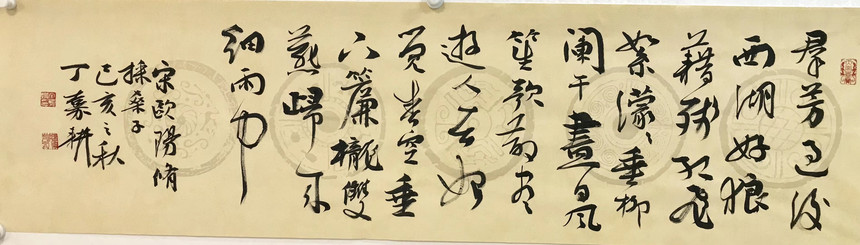 羣芳過後
西湖好狼
藉殘紅飛
絮濛〻垂柳
闌干盡日風
笙歌散盡
遊人去始
覺春空垂
下簾櫳雙
燕歸來
細雨中
宋歐陽脩
採桑子
己亥之秋
丁嘉耕